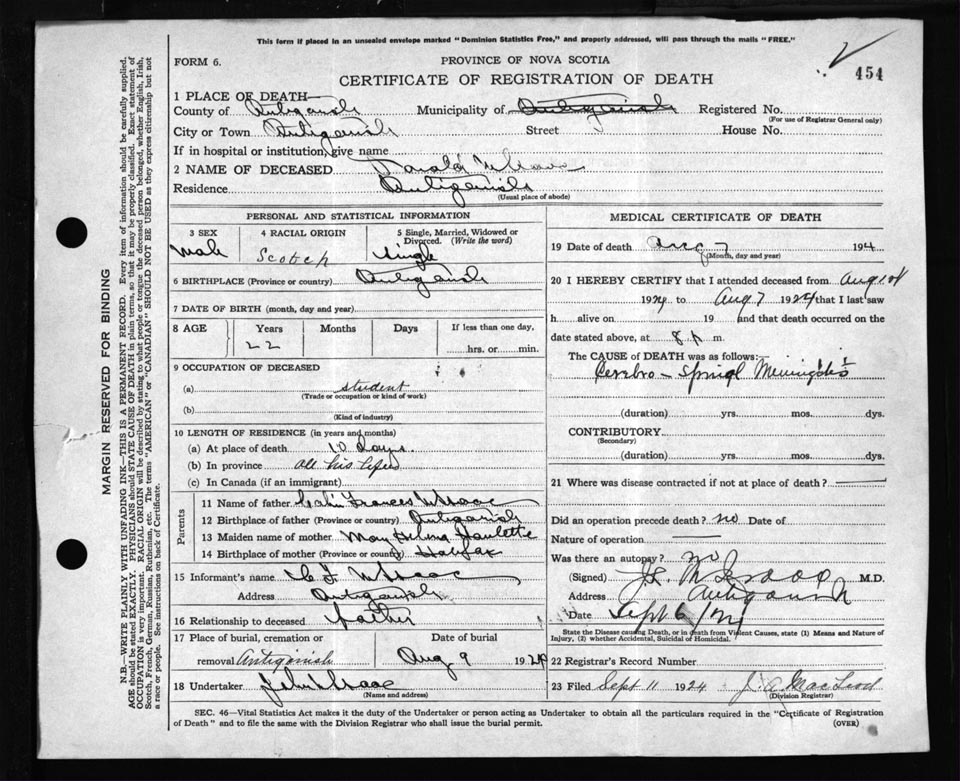 This form if placed in an unsealed envelope marked "Dominion Statistics Free," and properly addressed, will pass through the mails "FREE."
FORM 6.
PROVINCE OF NOVA SCOTIA
454
CERTIFICATE OF REGISTRATION OF DEATH
1 PLACE OF DEATH—
County of Antigonish Municipality of Antigonish Registered No.
(For use of Registrar General only)
City or Town Antigonish Street House No.
If in hospital or institution, give name
2 NAME OF DECEASED
Residence Antigonish
(Usual place of abode)
PERSONAL AND STATISTICAL INFORMATION
3 SEX
Male
4 RACIAL ORIGIN
Scotch
5 Single, Married, Widowed or Divorced. (Write the word)
Single
6 BIRTHPLACE (Province or country) Antigonish
7 DATE OF BIRTH (month, day and year)
8 AGE Years Months Days If less than one day,
22 hrs. or min.
9 OCCUPATION OF DECEASED
(a) student
(Trade or occupation or kind of work)
(b)
(Kind of industry)
10 LENGTH OF RESIDENCE (in years and months)
(a) At place of death 10 Days.
(b) In province all his life
(c) In Canada (if an immigrant)
Parents
11 Name of father Frances
12 Birthplace of father (Province or country) Antigonish
13 Maiden name of mother May
14 Birthplace of mother (Province or country) Halifax
15 Informant's name C F
Address Antigonish
16 Relationship to deceased father
17 Place of burial, cremation or removal Antigonish
Date of burial
Aug 9 1924
18 Undertaker John
(Name and address)
MEDICAL CERTIFICATE OF DEATH
19 Date of death Aug 7 1924
(Month, day and year)
20 I HEREBY CERTIFY that I attended deceased from Aug 1st
1924 to Aug 7 1924 that I last saw
h alive on 19 and that death occurred on the
date stated above, at 8 P m.
The CAUSE of DEATH was as follows:—
Cerebro - Spinal Meningitis
(duration) yrs. mos. dys.
CONTRIBUTORY
(Secondary)
(duration) yrs. mos. dys.
21 Where was disease contracted if not at place of death?
Did an operation precede death? no Date of
Nature of operation
Was there an autopsy? no
(Signed) M.D.
Address Antigonish
Date Sept 6/24
State the Disease causing Death, or in death from Violent Causes, state (1) Means and Nature of
Injury, (2) whether Accidental, Suicidal or Homicidal.
22 Registrar's Record Number
23 Filed Sept 11 1924 J. A. MacLeod
(Division Registrar)
SEC. 46—Vital Statistics Act makes it the duty of the Undertaker or person acting as Undertaker to obtain all the particulars required in the "Certificate of Registration
of Death" and to file the same with the Division Registrar who shall issue the burial permit.
(OVER)
MARGIN RESERVED FOR BINDING
N.B.—WRITE PLAINLY WITH UNFADING INK—THIS IS A PERMANENT RECORD. Every item of information should be carefully supplied.
AGE should be stated EXACTLY. PHYSICIANS should STATE CAUSE OF DEATH in plain terms, so that it may be properly classified. Exact statement of
OCCUPATION is very important. RACIAL ORIGIN will be described by stating to what people or tongue the deceased person belonged, whether English, Irish,
Scotch, French, German, Russian, Ruthenian, etc. The terms "AMERICAN" or "CANADIAN" SHOULD NOT BE USED as they express citizenship but not
a race or people. See instructions on back of Certificate.